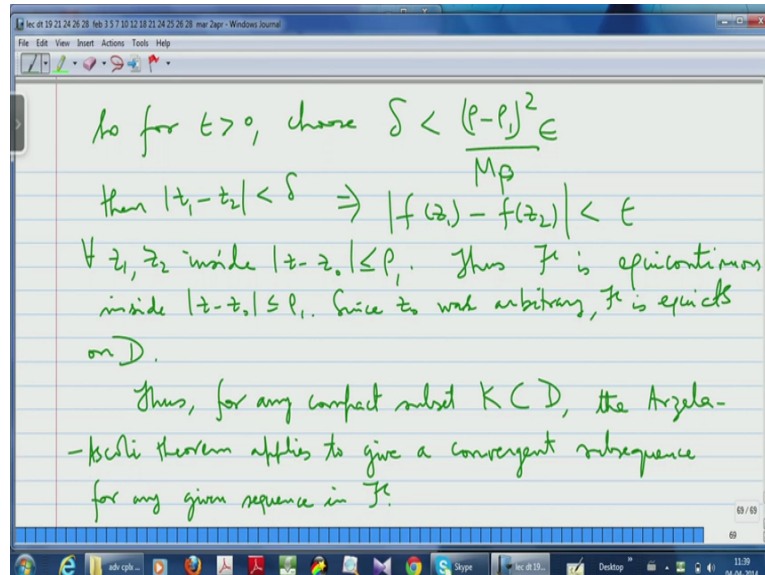 lec dt 19 21 24 26 28 feb 3 5 7 10 12 18 21 24 25 26 28 mar 2apr - Windows Journal
File Edit View Insert Actions Tools Help
So for ϵ > 0, choose δ < (ρ-ρ₁)² ϵ / Mρ
then |z₁ - z₂| < δ ⇒ |f(z₁) - f(z₂)| < ϵ
∀ z₁, z₂ inside |z - z₀| ≤ ρ₁. Thus ℱ is equicontinuous
inside |z - z₀| ≤ ρ₁. Since z₀ was arbitrary, ℱ is equicts
on D.
Thus, for any compact subset K ⊂ D, the Arzela-
-Ascoli theorem applies to give a convergent subsequence
for any given sequence in ℱ.
69/69
69
adv cplx...
Skype
lec dt 19...
Desktop
11:39
04-04-2014